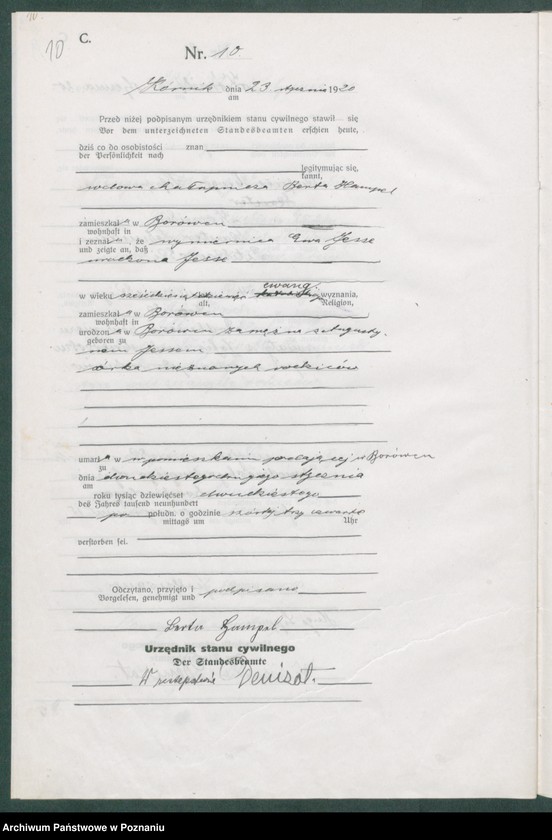 10.
10
C.
Nr. 10
Kórnik dnia 23 stycznia 1920
am
Przed niżej podpisanym urzędnikiem stanu cywilnego stawił się
Vor dem unterzeichneten Standesbeamten erschien heute,
dziś co do osobistości znan
der Persönlichkeit nach
legitymując się,
kannt,
wdowa chałupnica Berta Hampel
zamieszkał a w Borówcu
wohnhaft in
i zeznał a, że Ewa Jesse
und zeigte an, daß
Jesse
ewang.
w wieku wyznania,
alt, Religion,
zamieszkał a w Borówcu
wohnhaft in
urodzon a w Borówcu zamężna z Augusty-
geboren zu
nem Jessem
córka nieznanych rodziców
umarł a w w pomieszkaniu w Borówcu
zu
dnia dwudziestego drugiego stycznia
am
roku tysiąc dziewięćset dwudziestego
des Jahres tausend neunhundert
po połudn. o godzinie trzy czwarte
mittags um Uhr
verstorben sei.
Odczytano, przyjęto i podpisano
Vorgelesen, genehmigt und
Berta Hampel
Urzędnik stanu cywilnego
Der Standesbeamte
W zastępstwie Denizot.
Archiwum Państwowe w Poznaniu